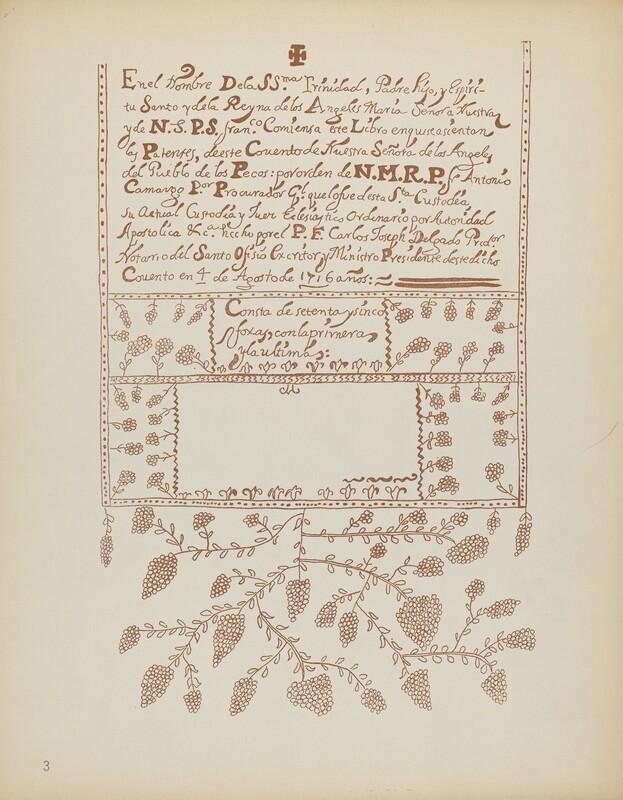 En el Nombre De la SS.ma Trinidad, Padre hijo, y Espiri-
tu Santo y de la Reyna de los Angeles Maria Señora Nuestra
y de N.S.P.S. fran.co Comiensa este Libro en que se asientan
las Patentes, de este Couento de Nuestra Señora de los Angeles
del Pueblo de los Pecos: por orden de N.M.R.P. fr Antonio
Camargo P.or Procurador G.l que lo fue desta S.ta Custodia,
Su Actual Custodio y Juez Eclesiastico Ordinario por Autoridad
Apostolica &c.a hecho por el P. F. Carlos Joseph Delgado
Notario del Santo Ofisio Escritor y Ministro Presidente deste dicho
Couento en 4 de Agosto de 1716 años:
Consta de setenta y sinco
foxas, con la primera,
y la ultima:
3